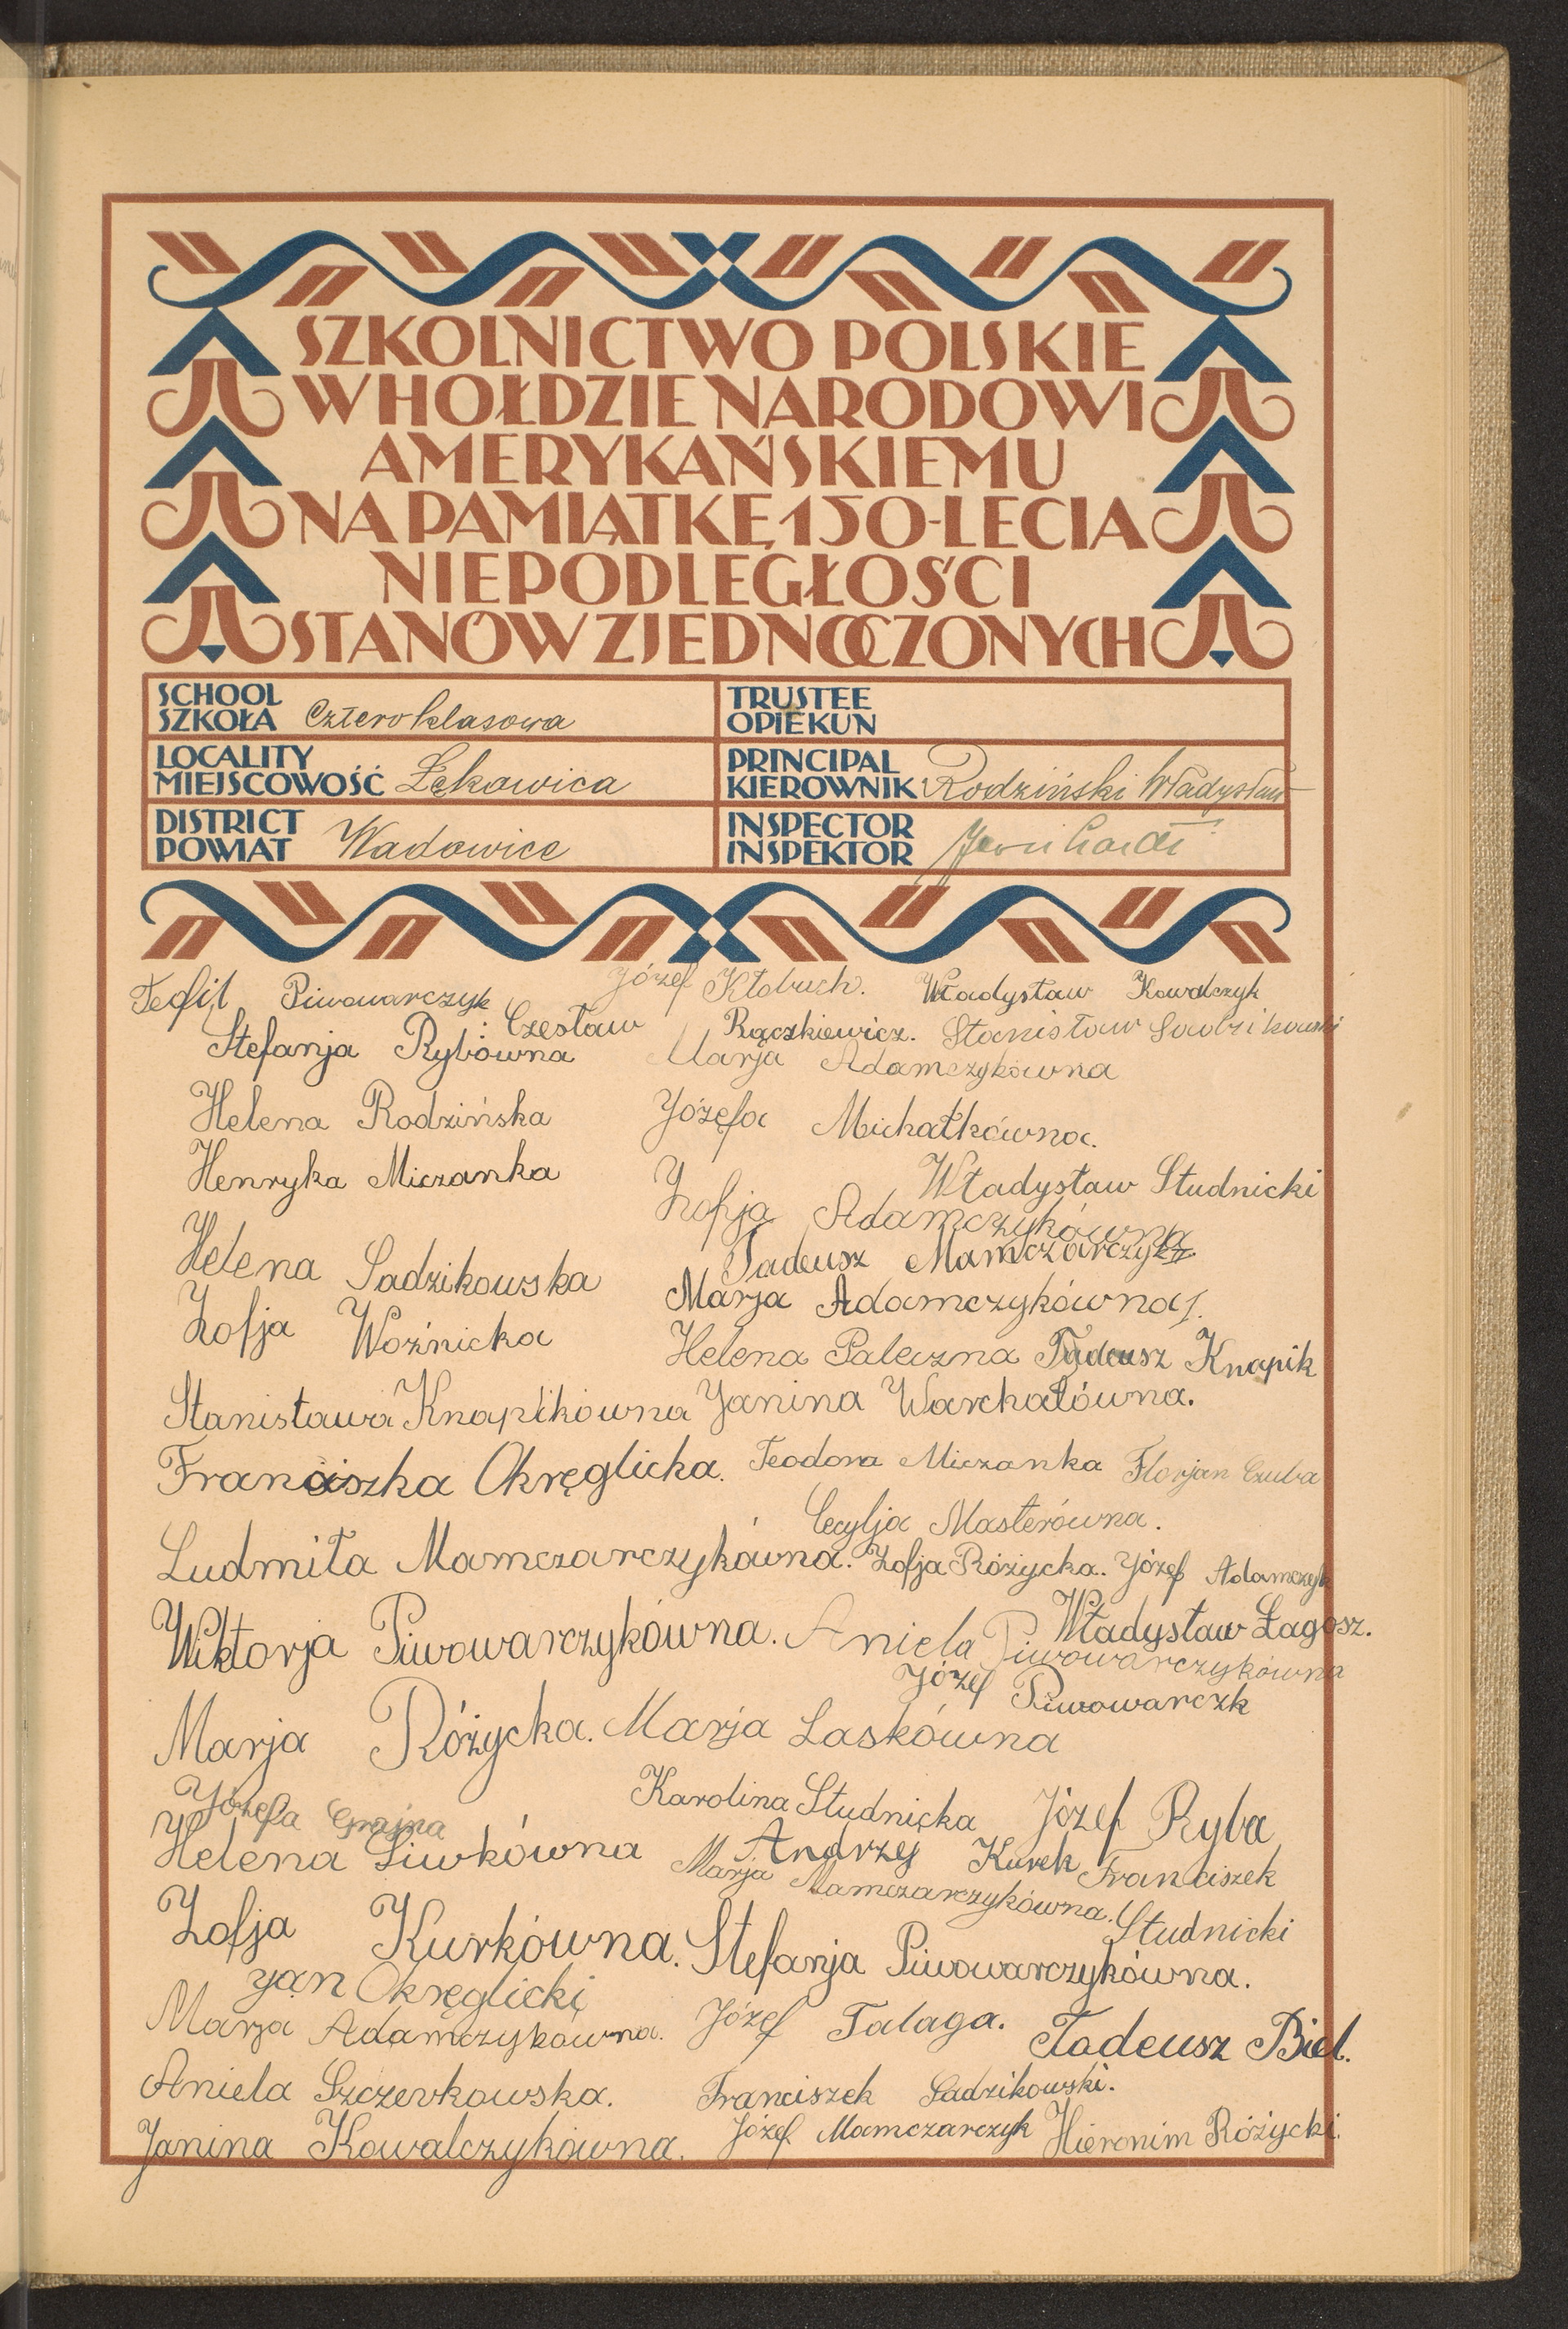 SZKOLNICTWO POLSKIE
W HOŁDZIE NARODOWI
AMERYKAŃSKIEMU
NA PAMIĄTKĘ 150-LECIA
NIEPODLEGŁOŚCI
STANÓW ZJEDNOCZONYCH
SCHOOL
SZKOŁA Czteroklasowa
TRUSTEE
OPIEKUN
LOCALITY
MIEJSCOWOŚĆ Łękawica
PRINCIPAL
KIEROWNIK Rodziński Władysław
DISTRICT
POWIAT Wadowice
INSPECTOR
INSPEKTOR
Teofil Piwowarczyk Józef Kłobuch. Władysław Kowalczyk
Czesław Rączkiewicz. Stanisław Sadzikowski
Stefanja Rybówna Marja Adamczykówna
Helena Rodzińska Józefa Michałkówna.
Henryka Miczanka Władysław Studnicki
Zofja Adamczykówna
Helena Sadzikowska Tadeusz Mamczarczyk
Zofja Woźnicka Marja Adamczykówna I.
Helena Paleczna Tadeusz Knapik
Stanisława Knapikówna Janina Warchałówna.
Franciszka Okręglicka. Teodora Miczanka Florjan Czuba
Cecylja Masterówna.
Ludmiła Mamczarczykówna. Zofja Różycka. Józef Adamczyk
Wiktorja Piwowarczykówna. Aniela Piwowarczykówna Władysław Łagosz.
Józef Piwowarczk
Marja Różycka. Marja Laskówna
Józefa Grajna Karolina Studnicka Józef Ryba
Helena Siwkówna Andrzej Kurek Franciszek Studnicki
Marja Mamczarczykówna.
Zofja Kurkówna. Stefanja Piwowarczykówna.
Jan Okręglicki
Marja Adamczykówna. Józef Talaga. Tadeusz Biel.
Aniela Szczerkowska. Franciszek Sadzikowski.
Janina Kowalczykówna. Józef Mamczarczyk Hieronim Różycki.